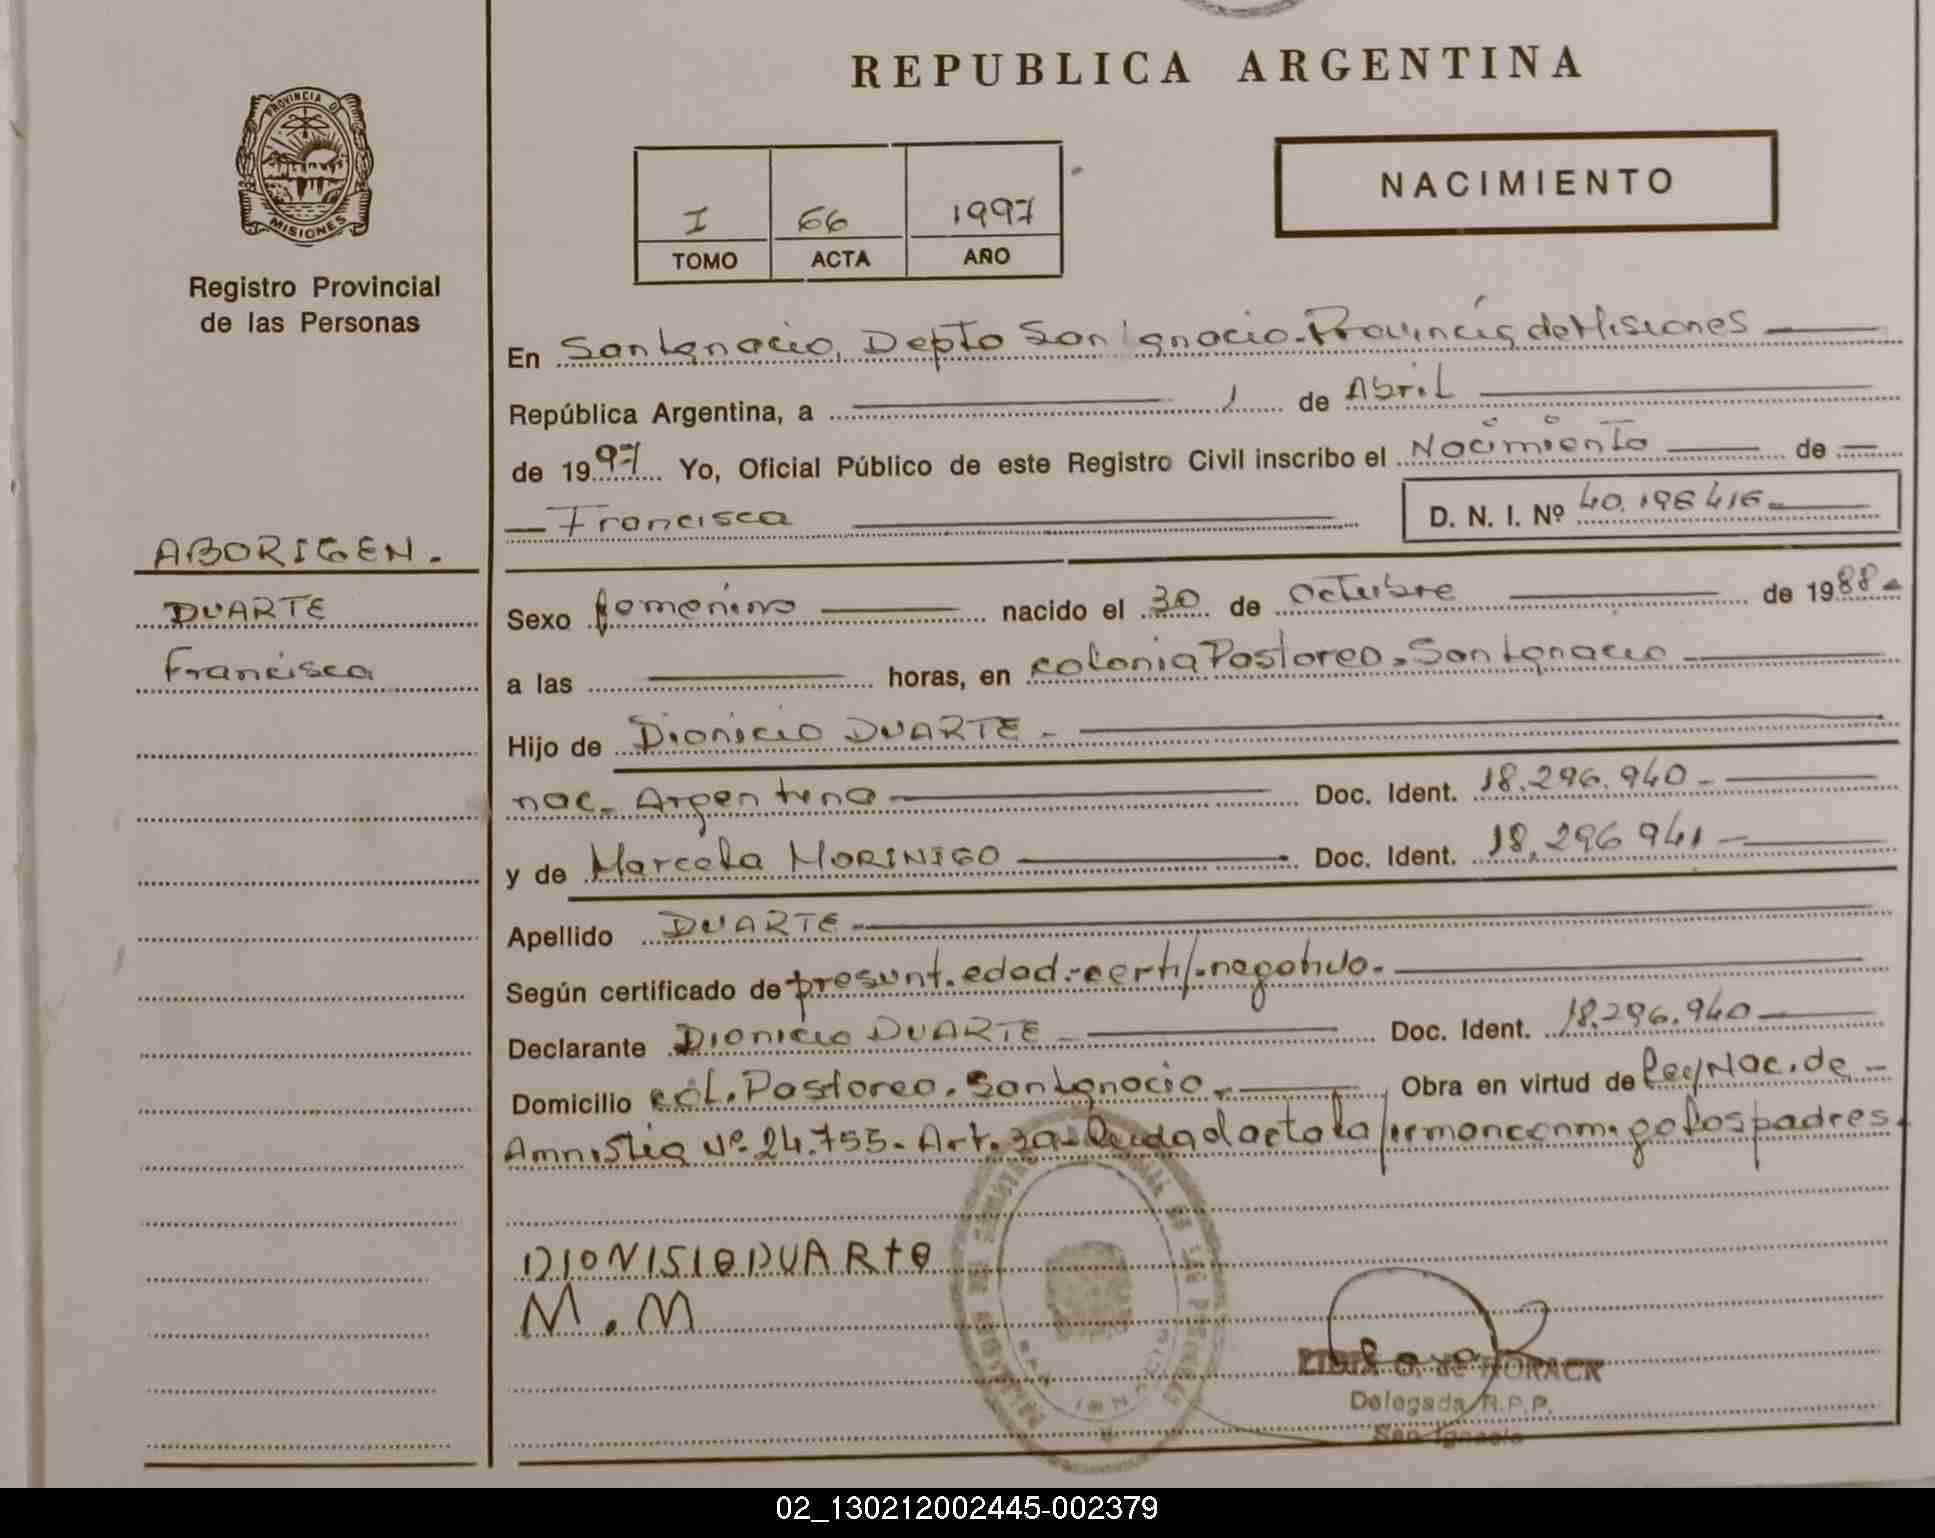 REPUBLICA ARGENTINA
PROVINCIA DE
MISIONES
Registro Provincial
de las Personas
I 66 1997
TOMO ACTA AÑO
NACIMIENTO
En San Ignacio, Depto San Ignacio - Provincia de Misiones
República Argentina, a 1 de Abril
de 1997 Yo, Oficial Público de este Registro Civil inscribo el Nacimiento de
Francisca D. N. I. Nº 40.196416-
ABORIGEN.
DUARTE
Francisca
Sexo femenino nacido el 30 de Octubre de 1988-
a las horas, en colonia Pastoreo. San Ignacio
Hijo de Dionicio DUARTE -
nac. Argentina Doc. Ident. 18.296.940-
y de Marcela MORINIGO Doc. Ident. 18.296 941-
Apellido DUARTE
Según certificado de presunt. edad.-certif. negativo.
Declarante Dionicio DUARTE Doc. Ident. 18.296.940
Domicilio col. Pastoreo. San Ignacio. Obra en virtud de Ley Nac. de -
Amnistia Nº 24.755- Art. 3a- Leida el acta la firman conmigo los padres.
DIONISIO DUARTE
M.M
DE HORACK
Delegada R.P.P.
San Ignacio
02_130212002445-002379